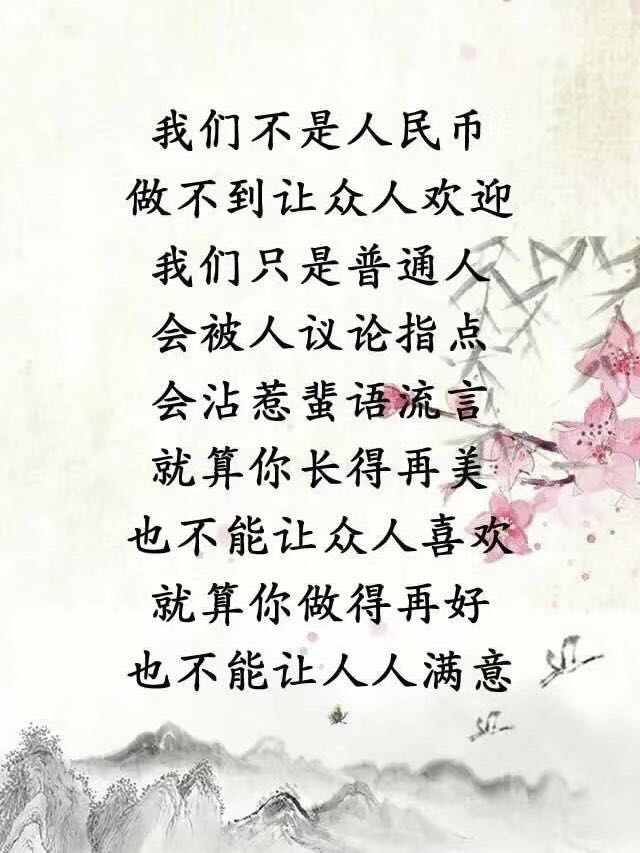 我们不是人民币
做不到让众人欢迎
我们只是普通人
会被人议论指点
会沾惹蜚语流言
就算你长得再美
也不能让众人喜欢
就算你做得再好
也不能让人人满意